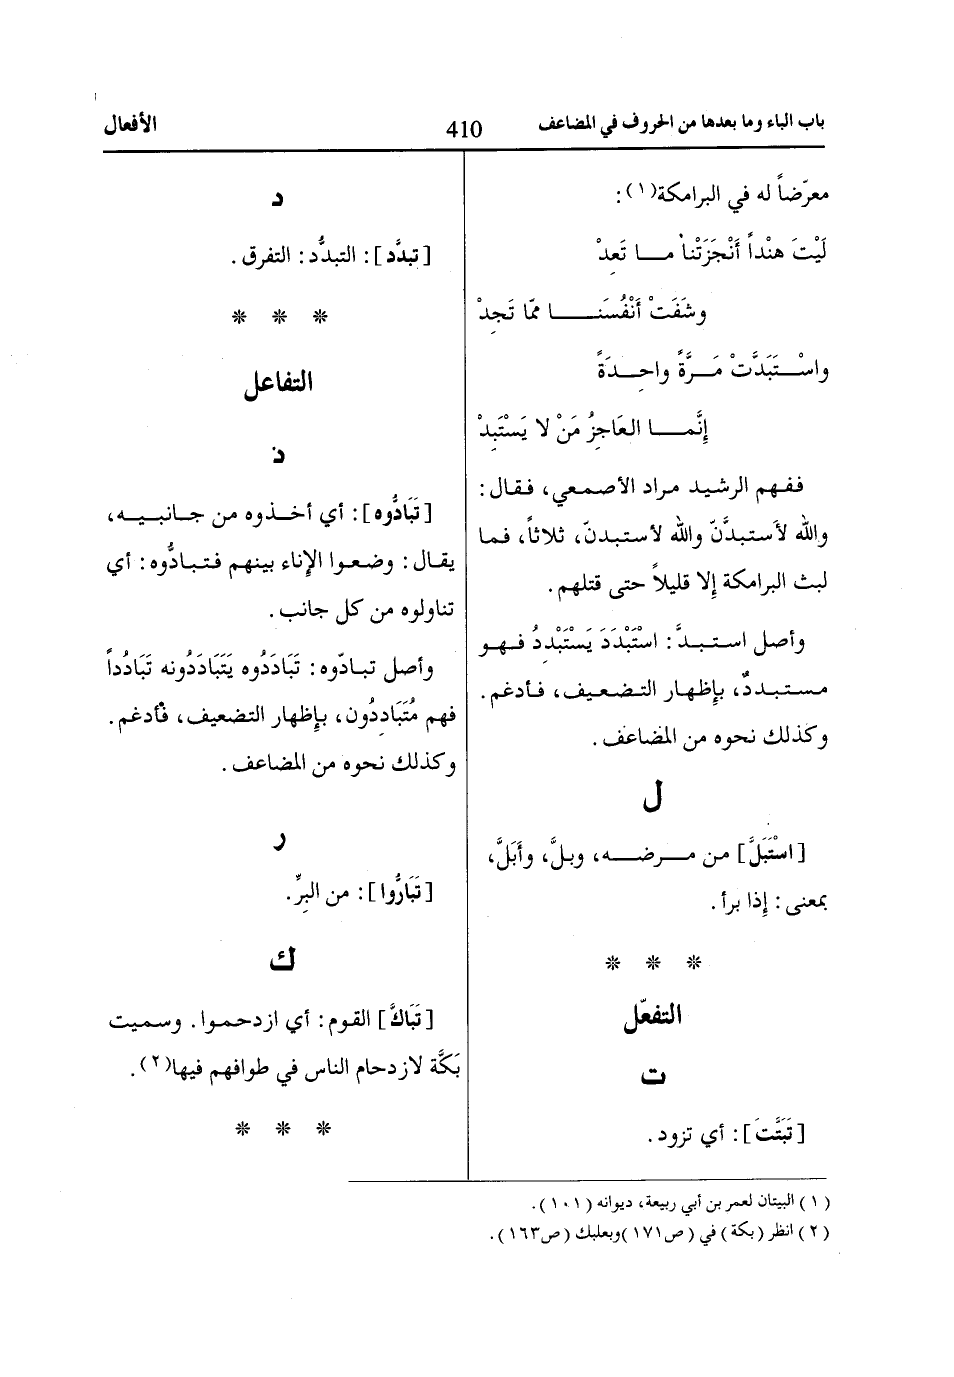 باب الباء وما بعدها من الحروف في المضاعف
410
الأفعال
معرّضاً له في البرامكة(١):
لَيْتَ هنْداً أَنْجَزَتْنا مـــا تَعِدْ
وشَفَتْ أَنْفُسَنـــا ممّا تَجِدْ
واسْـتَبَدَّتْ مَـرَّةً واحِـدَةً
إنَّمـــا العَاجِزُ مَنْ لا يَسْتَبِدْ
ففهم الرشيد مراد الأصمعي، فقال:
والله لأستبدَّنّ والله لأستبدنّ، ثلاثاً، فما
لبث البرامكة إلا قليلاً حتى قتلهم.
وأصل استبدَّ: اسْتَبْدَدَ يَسْتَبْدِدُ فهو
مستبددٌ، بإظهار التضعيف، فأدغم.
وكذلك نحوه من المضاعف.
ل
[اسْتَبَلَّ] من مـرضـه، وبلَّ، وأَبَلَّ،
بمعنى: إذا برأ.
* * *
التفعّل
ت
[تَبَتَّتَ]: أي تزود.
د
[تبدَّد]: التبدُّد: التفرق.
* * *
التفاعل
د
[تَبَادُّوه]: أي أخـذوه من جـانبـيـه،
يقال: وضعوا الإناء بينهم فتبادُّوه: أي
تناولوه من كل جانب.
وأصل تبادّوه: تَبَادَدُوه يَتَبَادَدُونه تَبَادُداً
فهم مُتَبَادِدُون، بإظهار التضعيف، فأدغم.
وكذلك نحوه من المضاعف.
ر
[تَبَارُّوا]: من البِرِّ.
ك
[تَبَاكَّ] القوم: أي ازدحموا. وسميت
بَكَّة لازدحام الناس في طوافهم فيها(٢).
* * *
(١) البيتان لعمر بن أبي ربيعة، ديوانه (١٠١).
(٢) انظر (بكة) في (ص١٧١) وبعلبك (ص١٦٣).